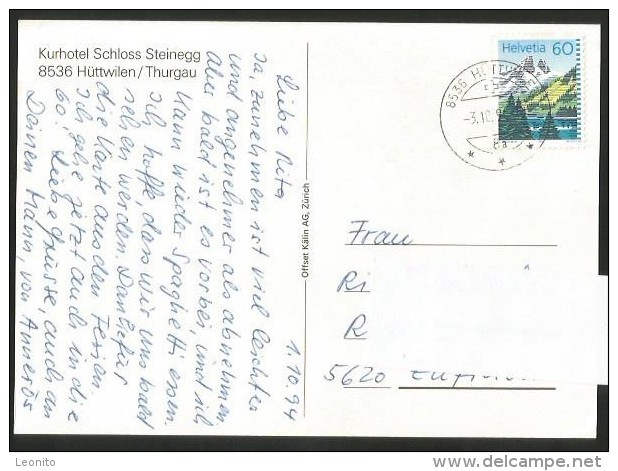 Kurhotel Schloss Steinegg
8536 Hüttwilen / Thurgau
1.10.94
Liebe Rita
Ja, zunehmen ist viel leichter
und angenehmer als abnehmen.
Aber bald ist es vorbei, und ich
kann wieder Spaghetti essen.
Ich hoffe, dass wir uns bald
sehen werden. Dank für
die Karte aus den Ferien
Ich gehe jetzt auch in die
60, Liebe Grüsse, auch an
Deinen Mann, von Annerös
Offset Kälin AG, Zürich
Helvetia 60
8536 HÜTTW
-3.10.
8a
Frau
Ri
R
5620
Leonito
www.delcampe.net